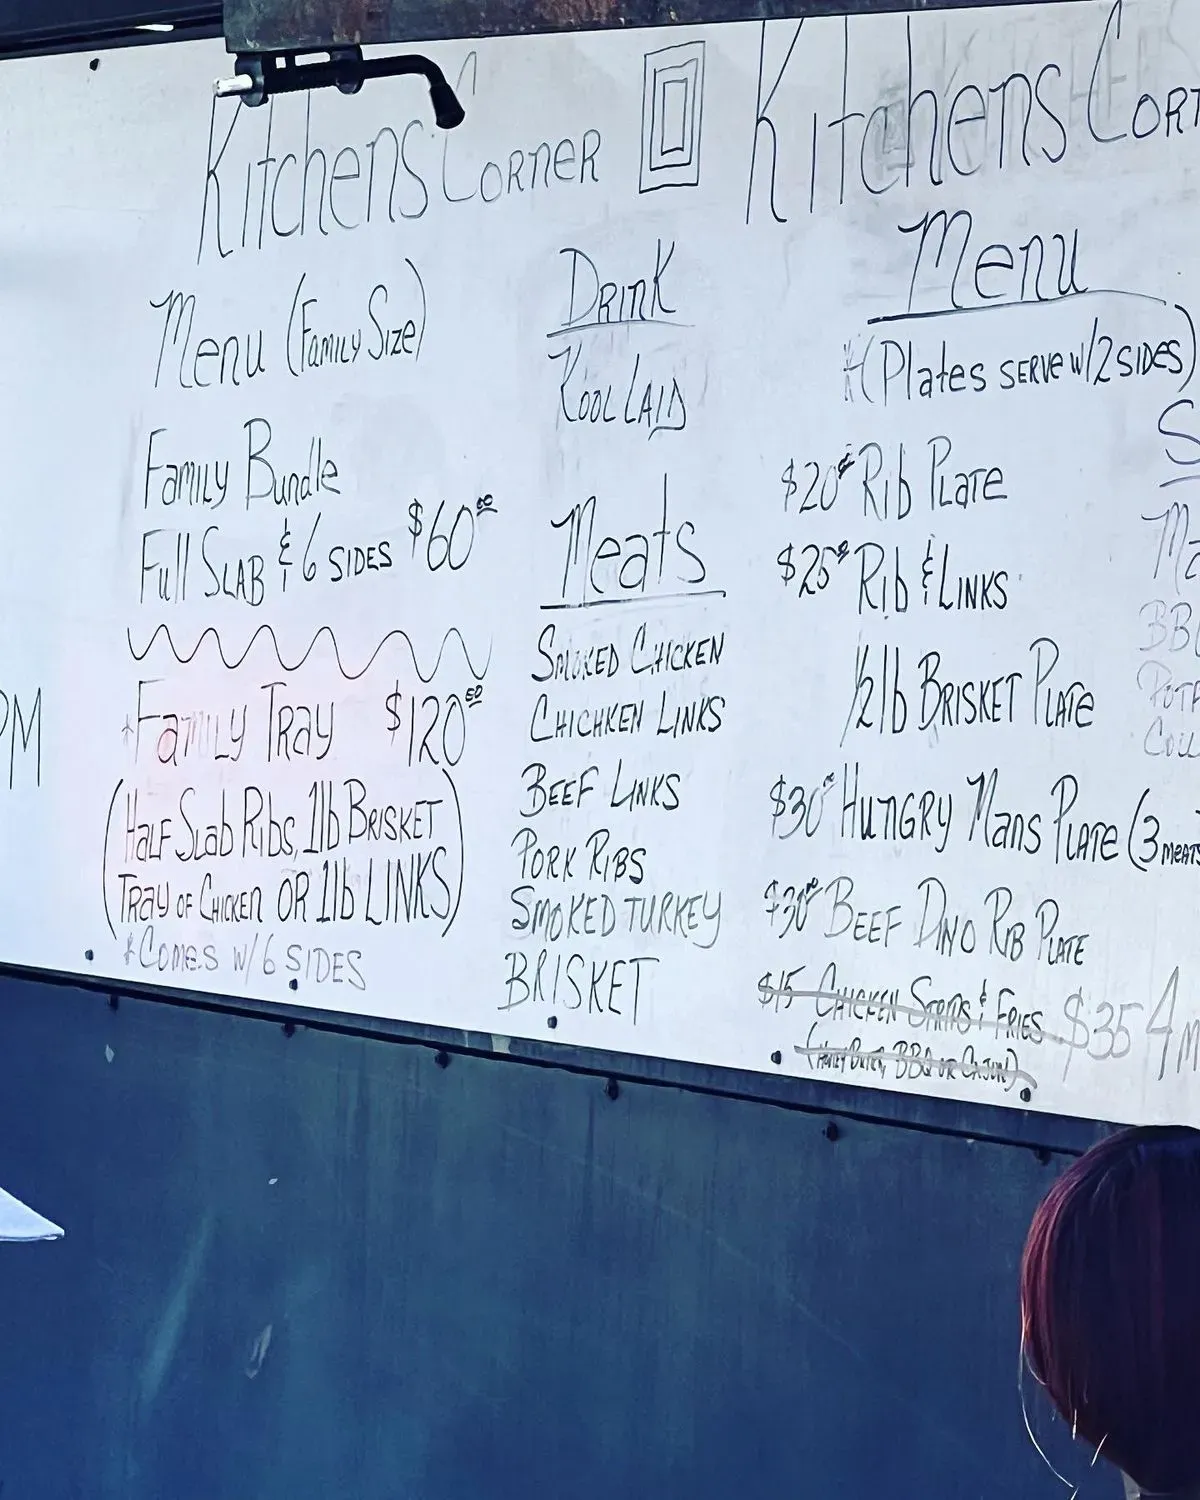 Kitchens Corner
Menu (Family Size)
Family Bundle
Full Slab & 6 sides $60.00
*Family Tray $120.00
(Half Slab Ribs, 1lb Brisket
Tray of Chicken OR 1lb LINKS)
*Comes w/6 SIDES
PM
Drink
Kool LAID
Meats
Smoked Chicken
Chichken Links
Beef Links
Pork Ribs
Smoked Turkey
BRISKET
Kitchens
Menu
*(Plates serve w/2 sides)
$20.00 Rib Plate
$25.00 Rib & Links
1/2 lb Brisket Plate
$30.00 Hungry Mans Plate (3 meats
$30.00 Beef Dino Rib Plate
$15 Chicken Strips & Fries $35 4
BBQ or Cajun)